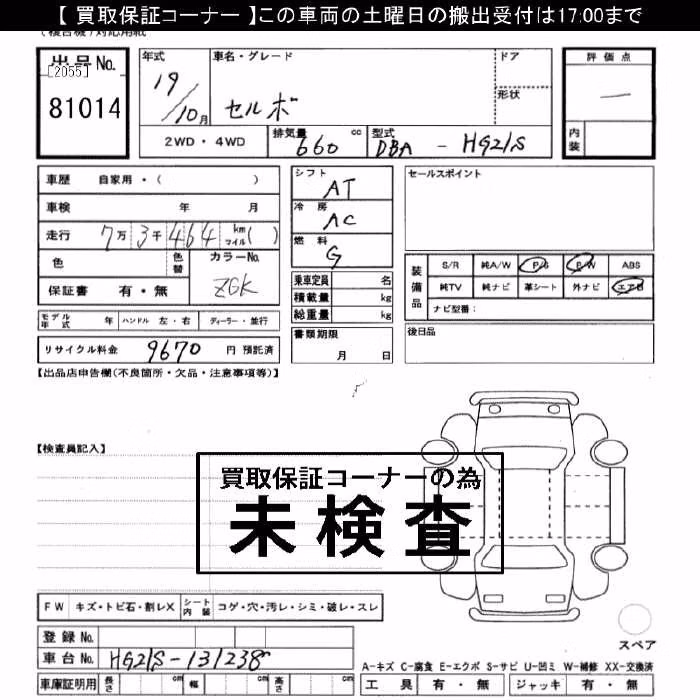 【 買取保証コーナー 】この車両の土曜日の搬出受付は17:00まで
出品No.
[2055]
81014
年式 19/10月
車名・グレード セルボ
ドア
形状
評価点 —
内装
2WD・4WD
排気量 660 cc
型式 DBA - HG21S
車歴 自家用・( )
車検 年 月
走行 7万 3千 464 km マイル( )
色 色替
カラーNo. ZGK
保証書 有・無
シフト AT
冷房 AC
燃料 G
乗車定員 名
積載量 kg
総重量 kg
セールスポイント
装備品
S/R 純A/W P/S P/W ABS
純TV 純ナビ 革シート 外ナビ エアB
ナビ型番:
モデル年式 年 ハンドル 左・右 ディーラー・並行
リサイクル料金 9670 円 預託済
書類期限
月 日
後日品
【出品店申告欄(不良箇所・欠品・注意事項等)】
【検査員記入】
買取保証コーナーの為
未検査
FW キズ・トビ石・割レX シート内装 コゲ・穴・汚レ・シミ・破レ・スレ
登録No.
車台No. HG21S-131238
車庫証明用 長さ cm 幅 cm 高さ cm
スペア
A-キズ C-腐食 E-エクボ S-サビ U-凹ミ W-補修 XX-交換済
工具 有・無 ジャッキ 有・無